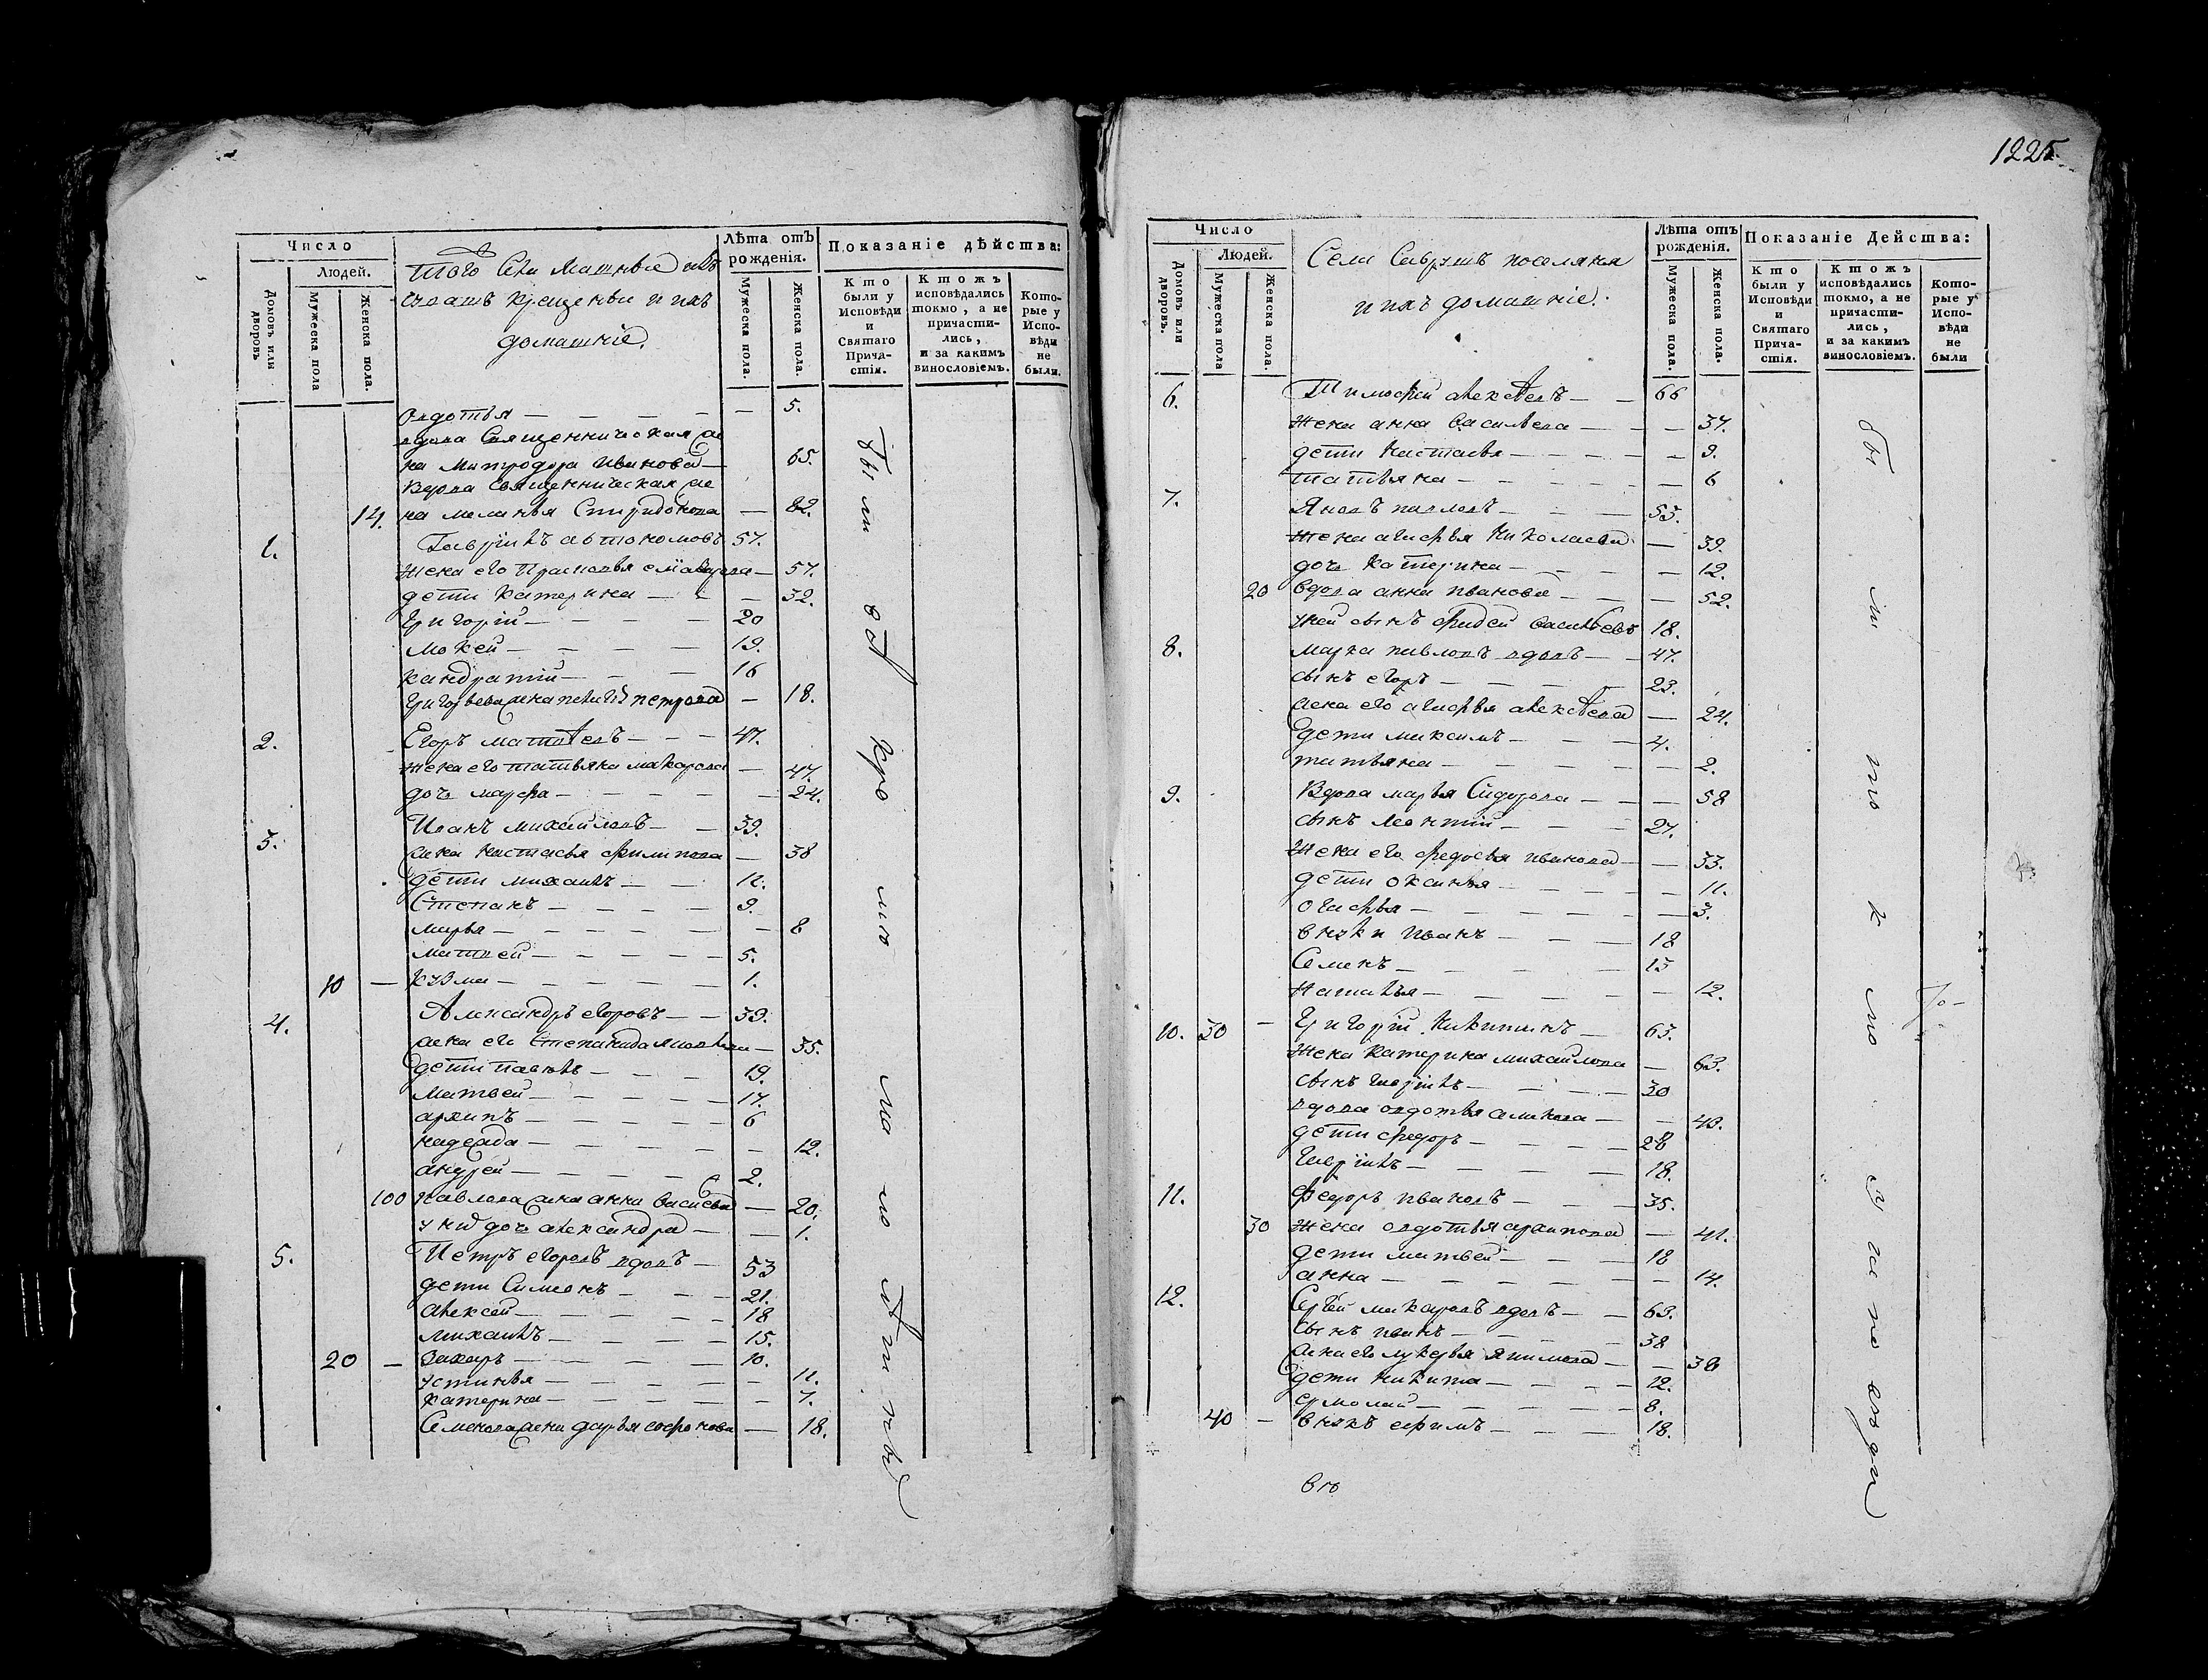 1225.
Число
Людей.
Домовъ или дворовъ
Мужеска пола
Женска пола.
Того Села
крещеныи и ихъ
домашніе.
Лѣта отъ рожденія.
Мужеска пола.
Женска пола.
Показаніе дѣйства:
Кто были у Исповѣди и Святаго Прича-стія.
Ктожъ исповѣдались токмо, а не причасти-лись, и за какимъ винословіемъ.
Кото-рые у Испо-вѣди не были.
овдотья — 5.
вдова Священническая же
на Митродора Иванова — 65.
Вдова священническая же
14. на меланья Спиридонова — 82.
1. Гаврилъ автономовъ 57.
жена его Прасковья — 57.
дети катерина — 32.
Григорій — 20
мокей — 19.
кандратій — 16
Григорьева жена петрова — 18.
2. Егоръ матвѣевъ — 47.
жена его татьяна макарова — 47.
дочь марфа — 24.
3. Иванъ михайловъ — 39.
жена настасья филипова — 38
дети михаилъ — 12.
Степанъ — 9.
марья — 8
матвей — 5.
10 — кузма — 1.
4. Александръ егоровъ — 39.
жена его Степанида яковлева — 35.
дети павелъ — 19.
матвей — 17.
архипъ — 6
надежда — 12.
андрей — 2.
100 павлова жена анна васильева — 20.
у ние дочь александра — 1.
5. Петръ егоровъ вдовъ — 53
дети Симионъ — 21.
алексей — 18
михаилъ — 15.
20 — Захаръ — 10.
устинья — 11.
катерина — 7.
Семенова жена дарья софронова — 18.
были
Число
Людей.
Домовъ или дворовъ.
Мужеска пола
Женска пола.
Села поселяня
и ихъ домашніе.
Лѣта отъ рожденія.
Мужеска пола.
Женска пола.
Показаніе Действа:
Кто были у Исповѣди и Святаго Прича-стія.
Ктожъ исповѣдались токмо, а не причасти-лись, и за какимъ винословіемъ.
Кото-рые у Испо-вѣди не были
6. Тимофей алексѣевъ — 66
жена анна васильева — 37.
дети настасья — 9.
татьяна — 6
7. Яковъ павловъ — 53.
жена агафья николаева — 39.
дочь катерина — 12.
20 вдова анна иванова — 52.
у ней сынъ фадей васильевъ 18.
8. марка павловъ вдовъ — 47.
сынъ егоръ — 23.
жена его агафья алексѣева — 24.
дети максимъ — 4.
татьяна — 2.
9. Вдова марья Сидорова — 58
сынъ леонтій — 27.
жена его федосья иванова — 33.
дети оксинья — 11.
огафья — 3.
внуки иванъ — 18
Семенъ — 15
наталья — 12.
10. 30 — Григорій Никитинъ — 63.
жена катерина михаилова — 63.
сынъ гаврилъ — 30
вдова овдотья — 43.
дети федоръ — 28
гаврилъ — 18.
11. федоръ ивановъ — 35.
30 жена овдотья архипова — 41.
дети матвей — 18
анна — 14.
12. Сергѣй макаровъ вдовъ — 63.
сынъ иванъ — 38
жена его лукерья — 38
дети никита — 12.
ермолай — 8.
40 — внукъ ефимъ — 18.
были